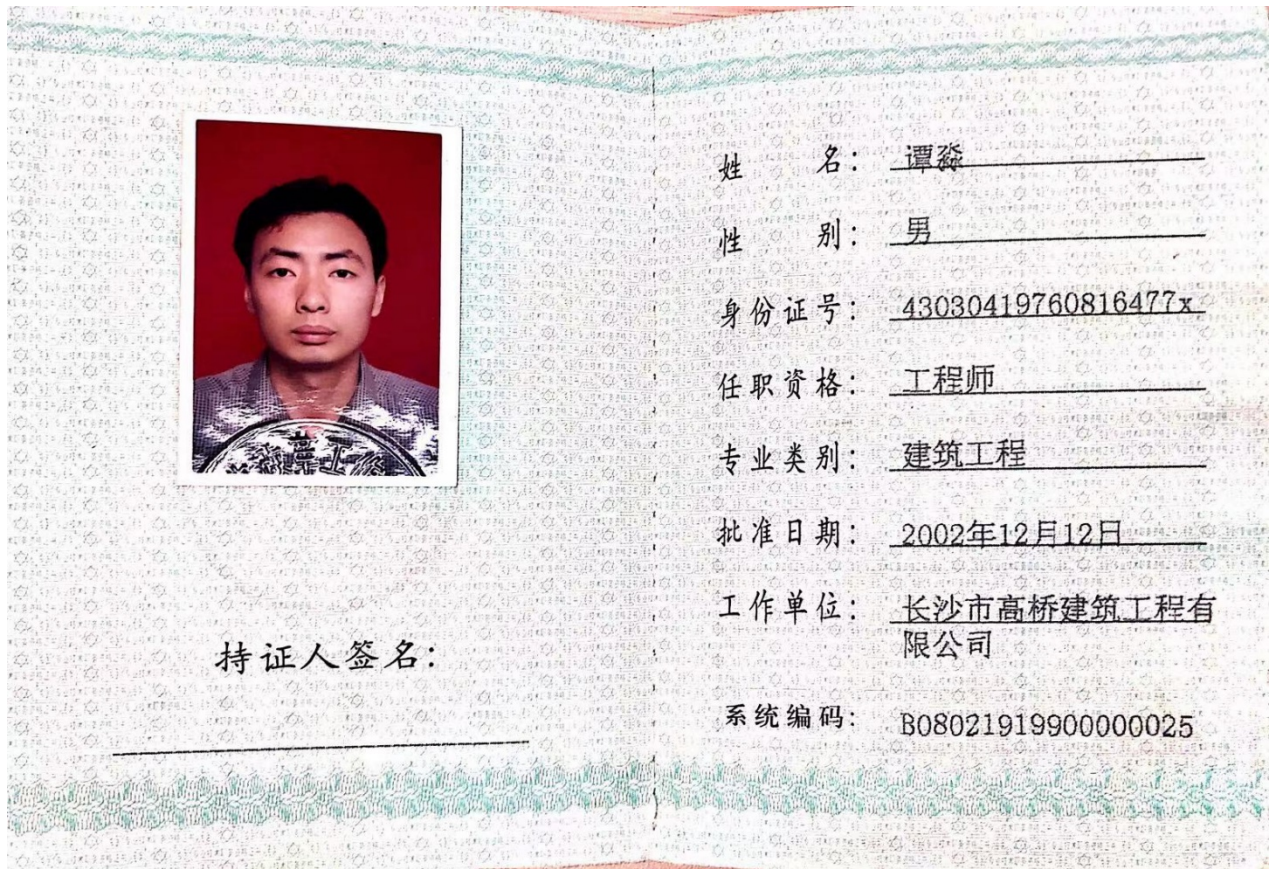 持证人签名:
姓 名: 谭淼
性 别: 男
身份证号: 43030419760816477x
任职资格: 工程师
专业类别: 建筑工程
批准日期: 2002年12月12日
工作单位: 长沙市高桥建筑工程有
限公司
系统编码: B08021919900000025